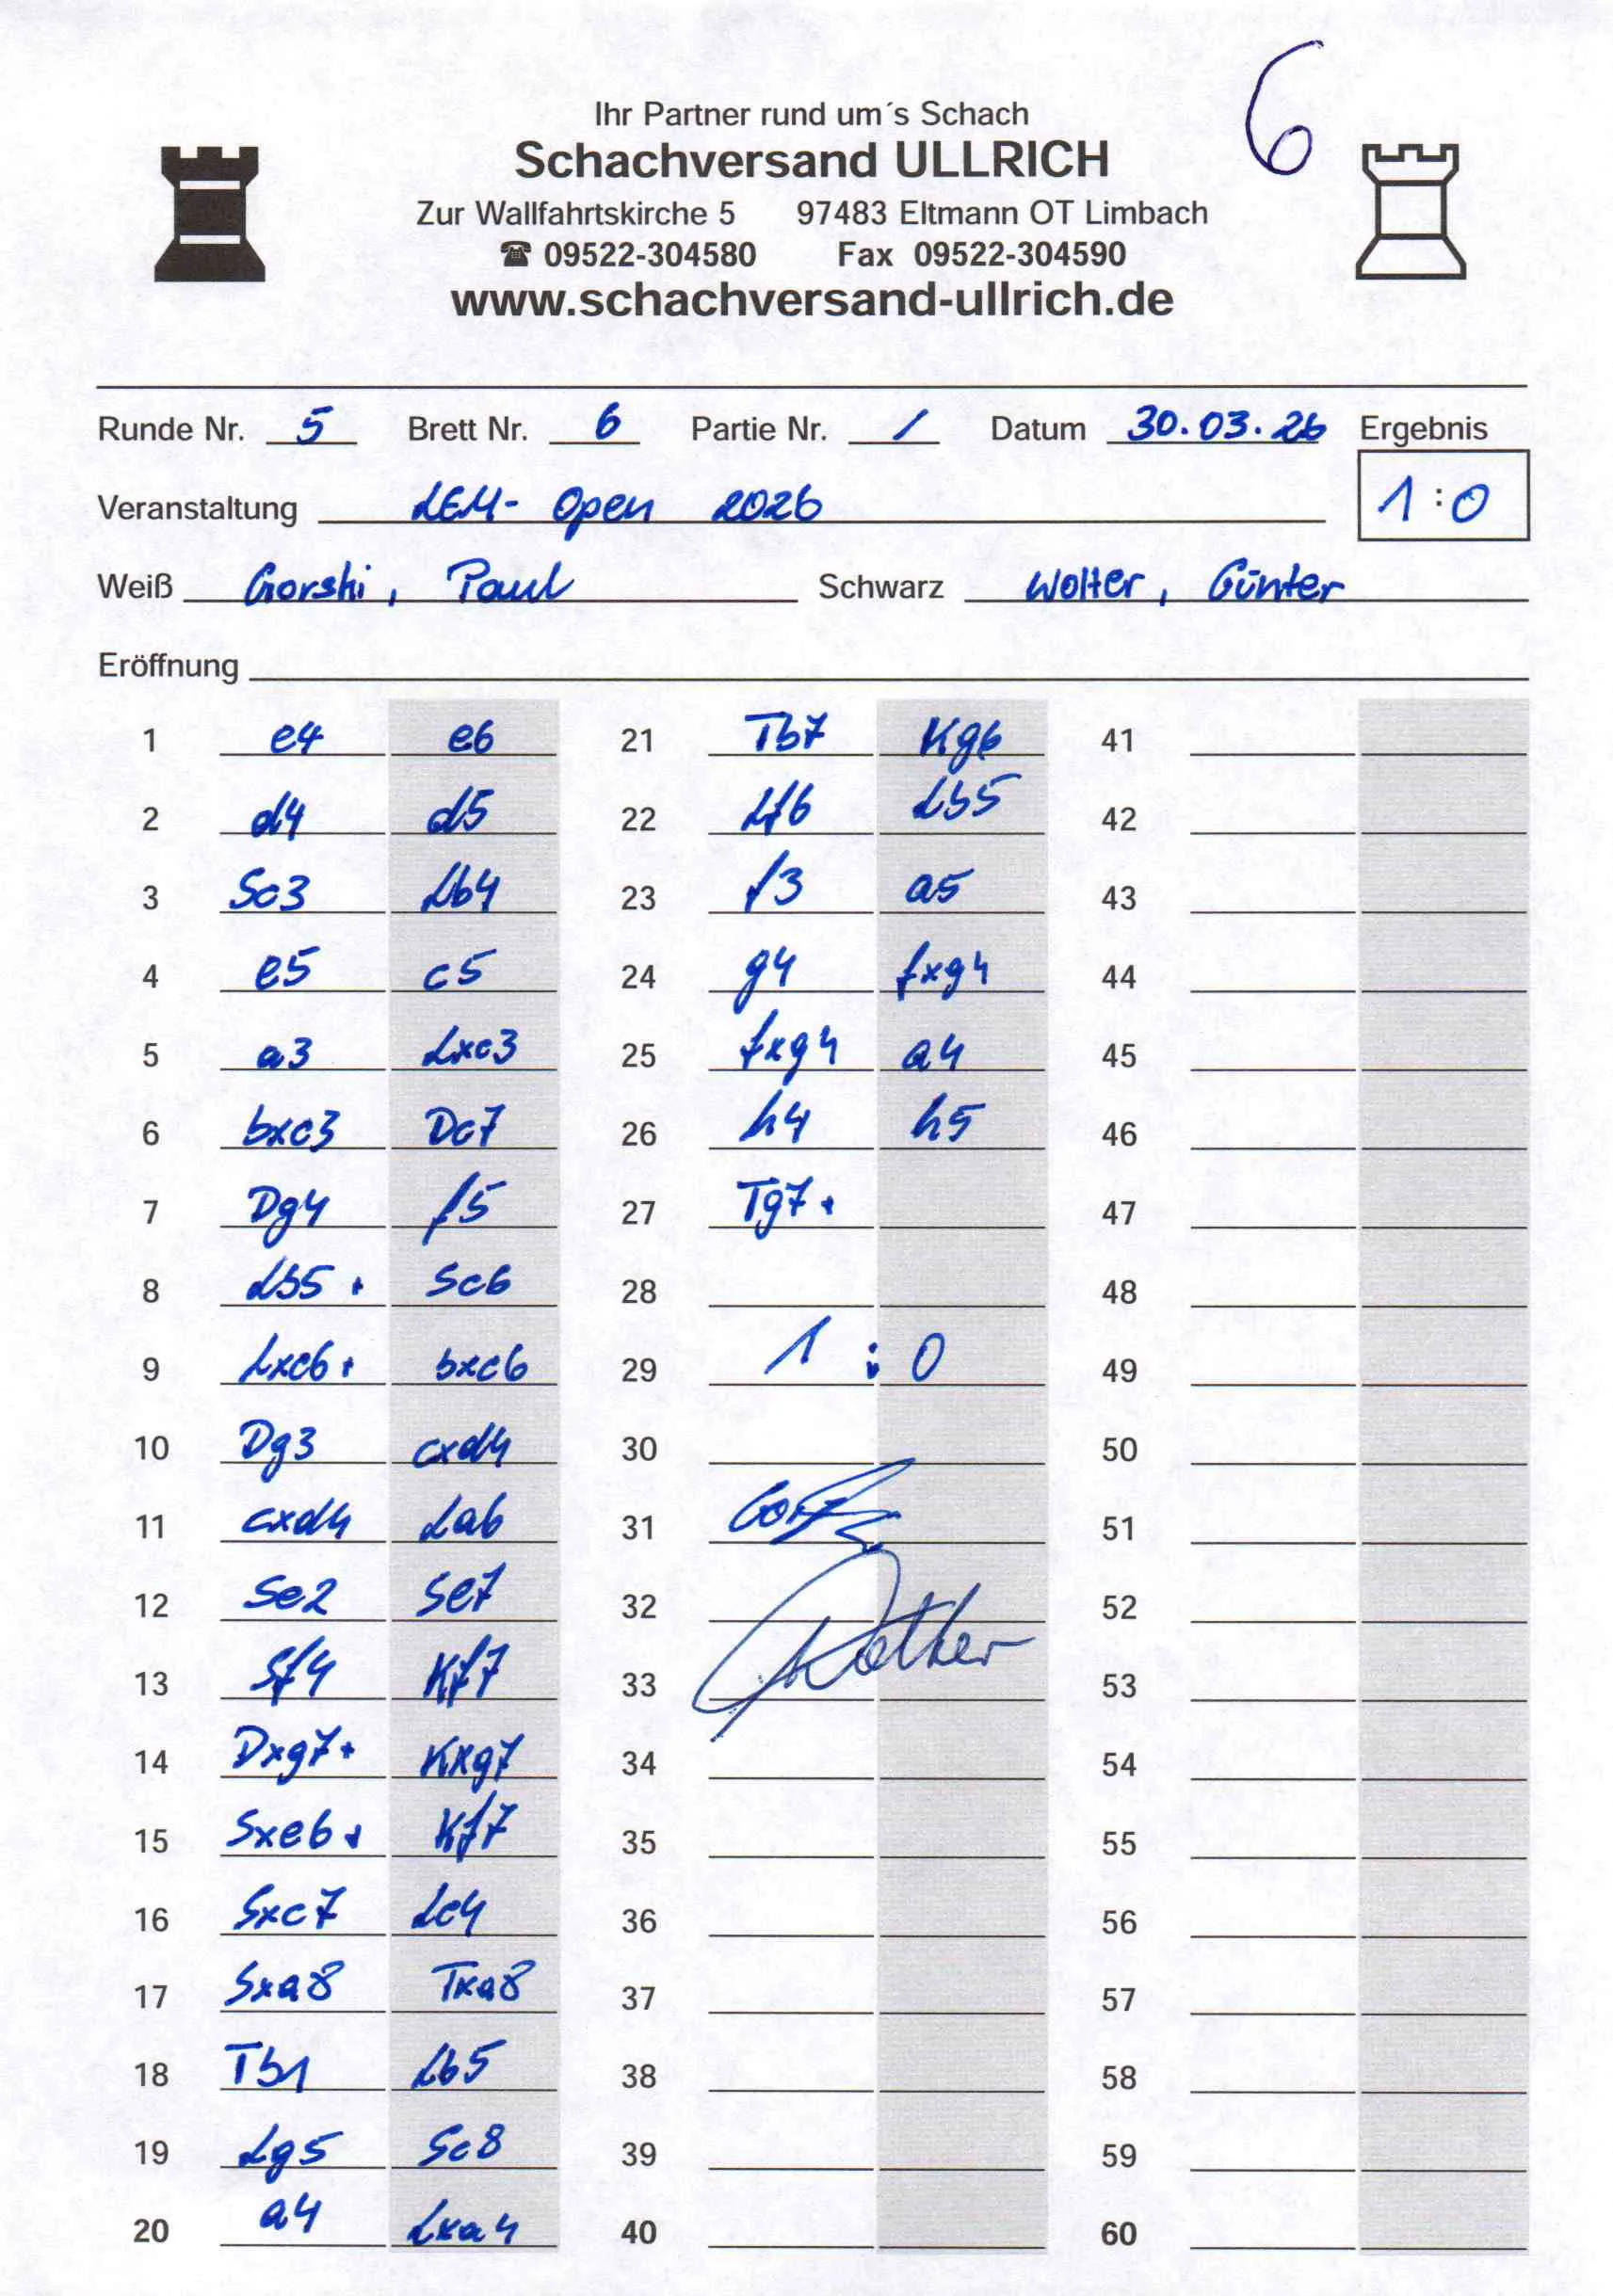 6
Ihr Partner rund um´s Schach
Schachversand ULLRICH
Zur Wallfahrtskirche 5 97483 Eltmann OT Limbach
☎ 09522-304580 Fax 09522-304590
www.schachversand-ullrich.de
Runde Nr. 5 Brett Nr. 6 Partie Nr. 1 Datum 30.03.26 Ergebnis
Veranstaltung LEM- Open 2026 1:0
Weiß Gorski, Paul Schwarz Wolter, Günter
Eröffnung
1 e4 e6 21 Tb7 Kg6 41
2 d4 d5 22 Lf6 Lb5 42
3 Sc3 Lb4 23 f3 a5 43
4 e5 c5 24 g4 fxg4 44
5 a3 Lxc3 25 fxg4 a4 45
6 bxc3 Dc7 26 h4 h5 46
7 Dg4 f5 27 Tg7+ 47
8 Lb5+ Sc6 28 48
9 Lxc6+ bxc6 29 1:0 49
10 Dg3 cxd4 30 50
11 cxd4 La6 31 51
12 Se2 Se7 32 52
13 Sf4 Kf7 33 53
14 Dxg7+ Kxg7 34 54
15 Sxe6+ Kf7 35 55
16 Sxc7 Lc4 36 56
17 Sxa8 Txa8 37 57
18 Tb1 Lb5 38 58
19 Lg5 Sc8 39 59
20 a4 Lxa4 40 60